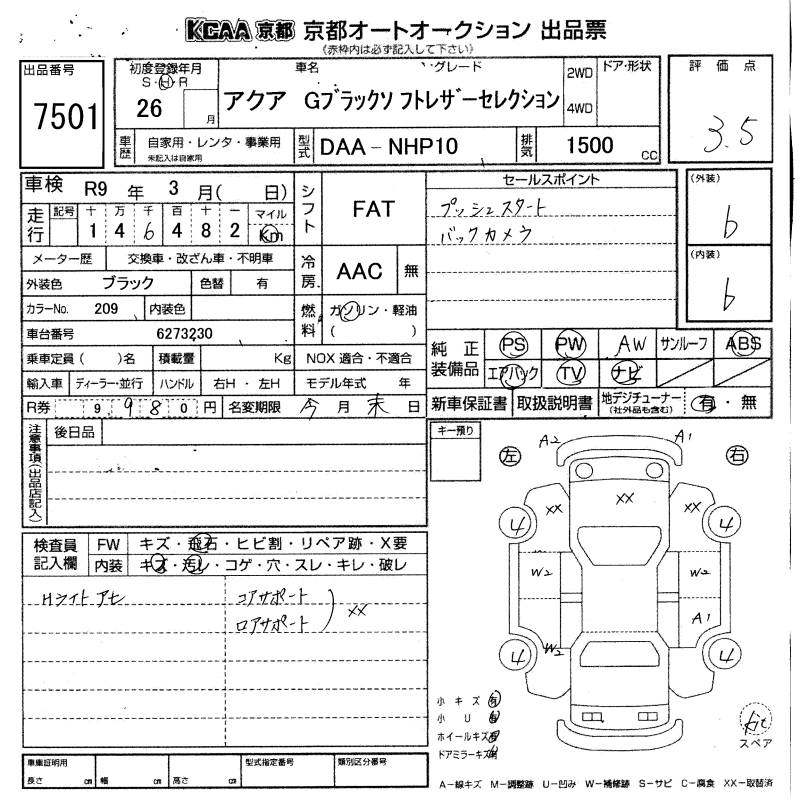 KCAA 京都 京都オートオークション 出品票
(赤枠内は必ず記入して下さい)
出品番号
7501
初度登録年月
S・H・R
26 月
車名 ・グレード
アクア Gブラックソフトレザーセレクション
2WD
4WD
ドア・形状
評価点
3.5
車歴 自家用・レンタ・事業用
未記入は自家用
型式 DAA-NHP10
排気 1500 CC
車検 R9 年 3 月( 日)
走行 記号 十 万 千 百 十 一 マイル
1 4 6 4 8 2 Km
メーター歴 交換車・改ざん車・不明車
外装色 ブラック 色替 有
カラーNo. 209 内装色
車台番号 6273230
乗車定員( )名 積載量 Kg
輸入車 ディーラー・並行 ハンドル 右H・左H
R券 9,980 円 名変期限 今 月 末 日
シフト FAT
冷房 AAC 無
燃料 ガソリン・軽油
( )
NOX 適合・不適合
モデル年式 年
セールスポイント
プッシュスタート
バックカメラ
(外装)
6
(内装)
6
純正装備品 PS PW AW サンルーフ ABS
エアバック TV ナビ
新車保証書 取扱説明書 地デジチューナー
(社外品も含む) 有・無
注意事項(出品店記入)
後日品
キー預り
検査員記入欄
FW キズ・飛石・ヒビ割・リペア跡・X要
内装 キズ・汚レ・コゲ・穴・スレ・キレ・破レ
Hライト アセ コアサポート
ロアサポート XX
左 右
A2 A1
XX XX XX
4 4
W2 W2
A1
W2
4 4
小キズ 有
小U 有
ホイールキズ 有
ドアミラーキズ
kit
スペア
車庫証明用
長さ cm 幅 cm 高さ cm
型式指定番号
類別区分番号
A-線キズ M-調整跡 U-凹み W-補修跡 S-サビ C-腐食 XX-取替済